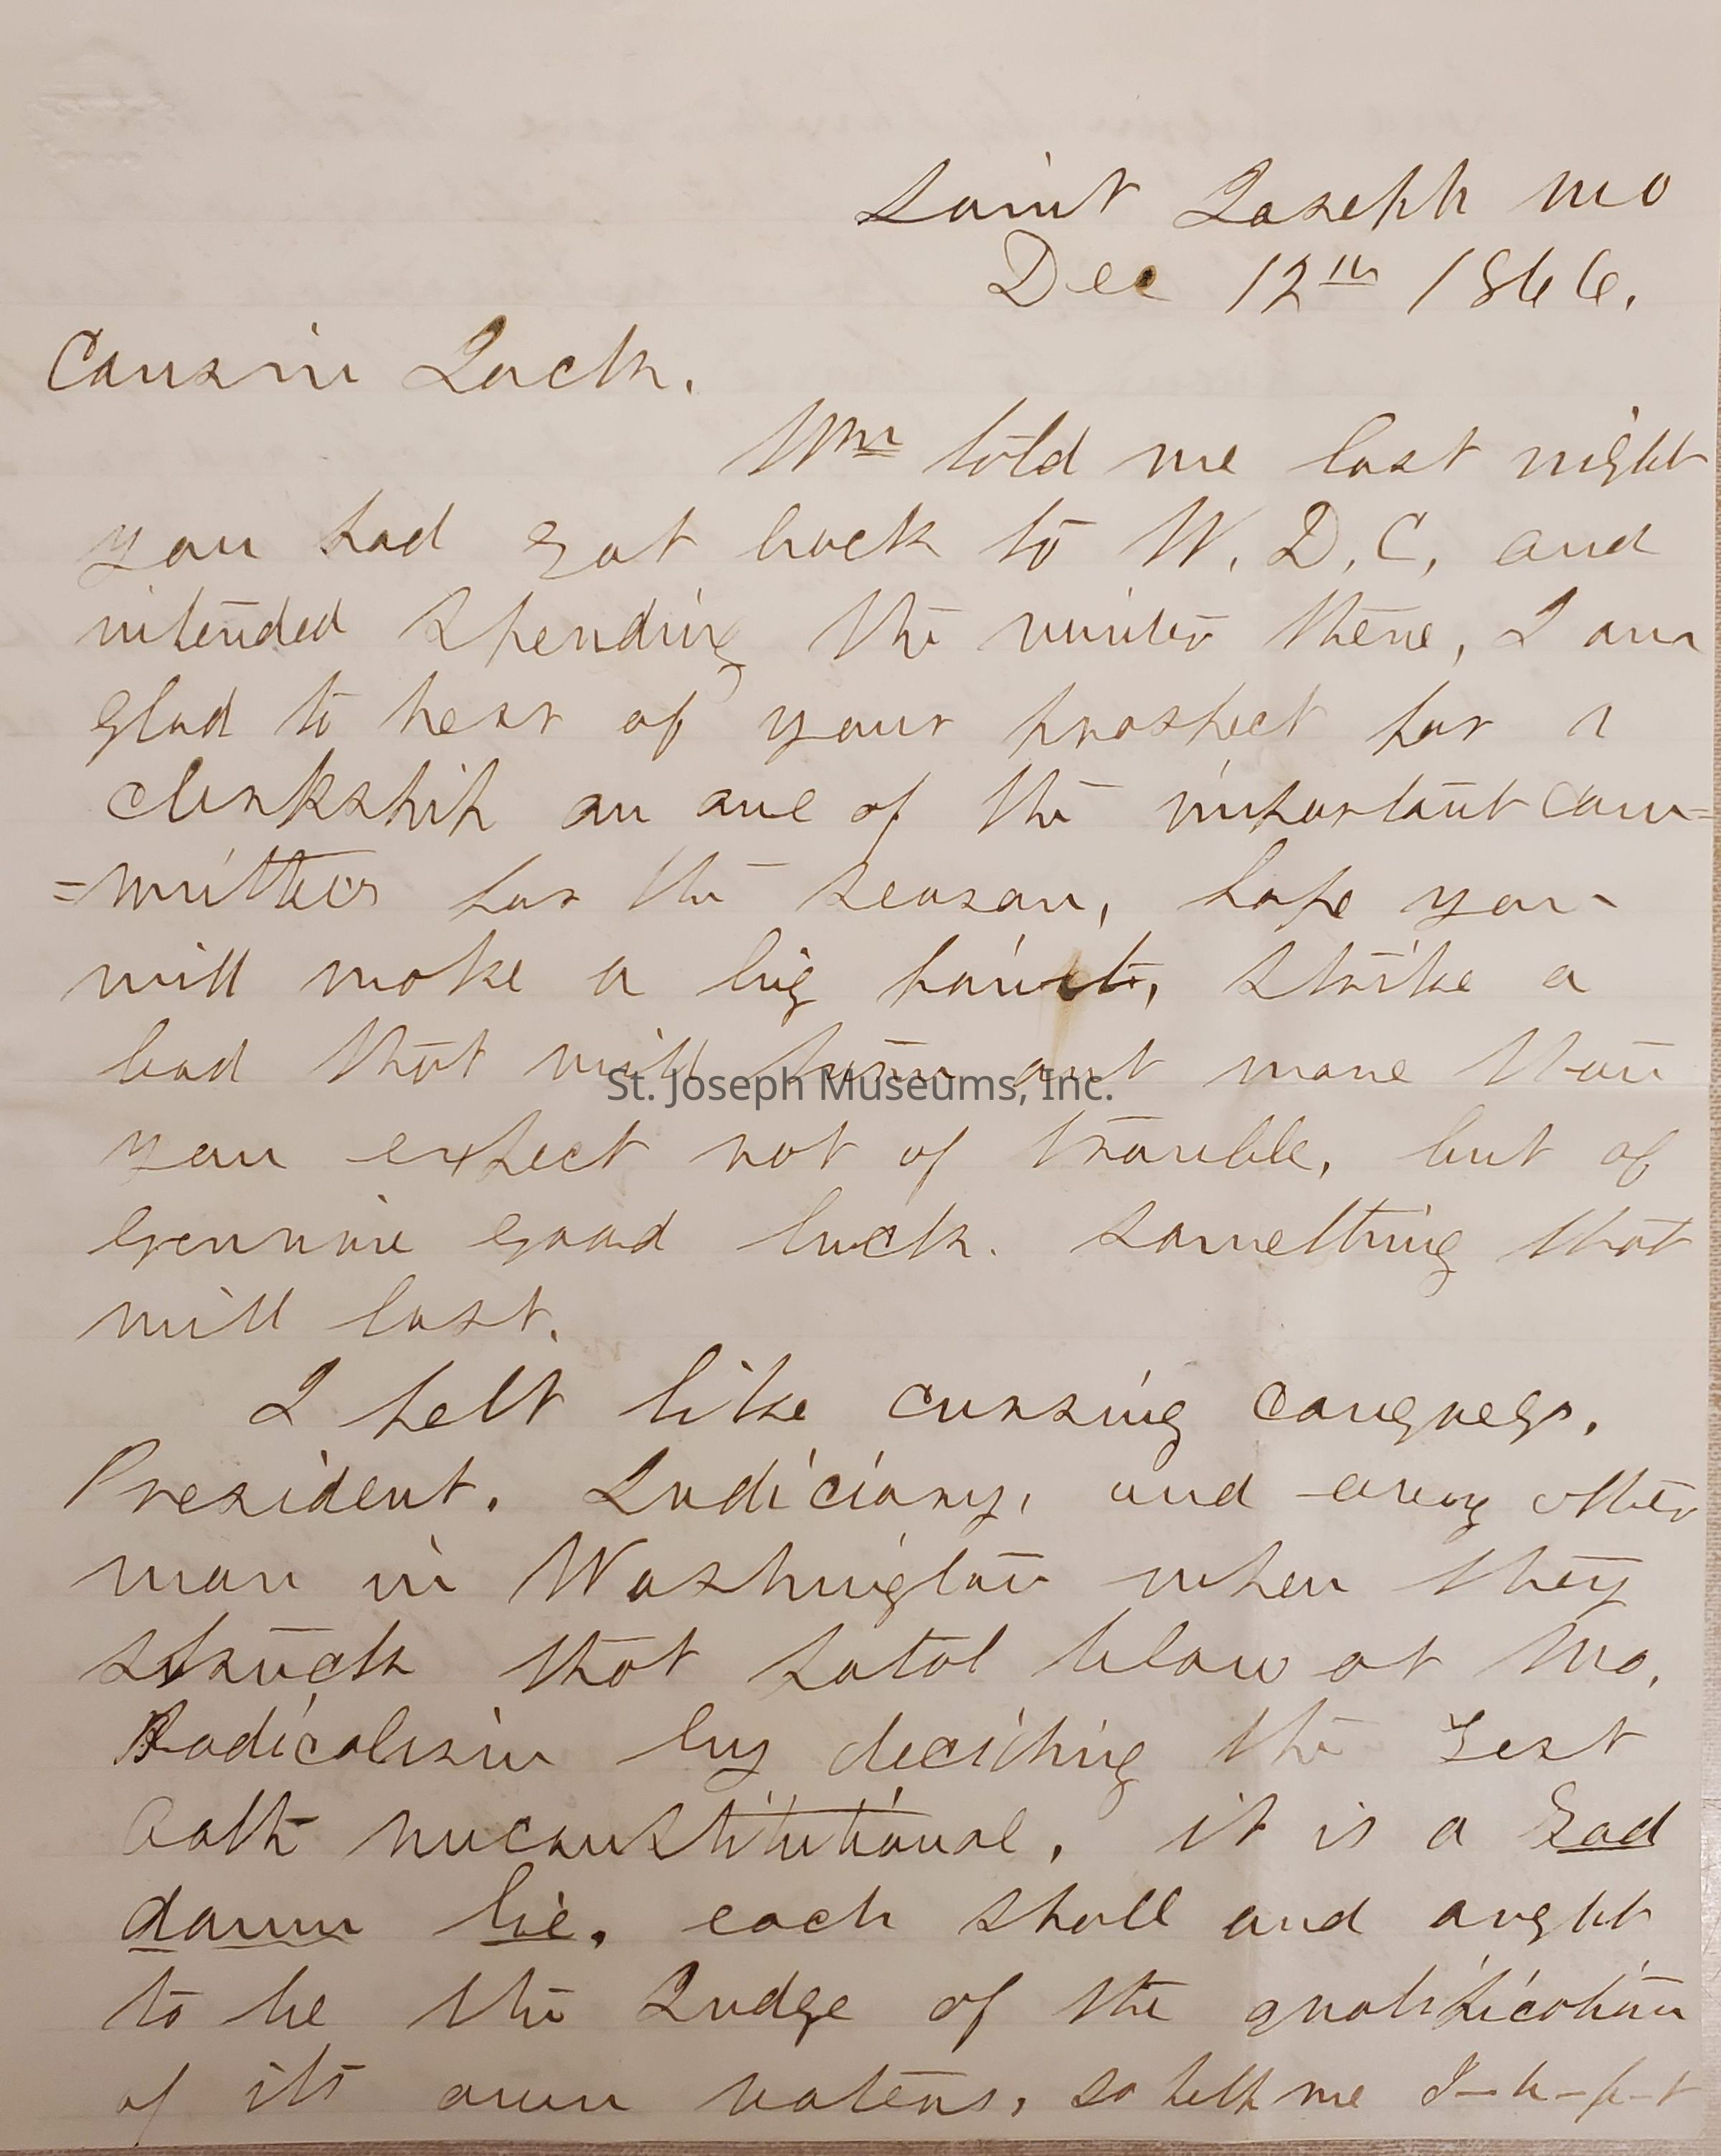 Saint Joseph Mo
Dec 12th 1866.
Cousin Jack.
Wm told me last night
you had got back to W. D. C. and
intended spending the winter there, I am
glad to hear of your prospect for a
clerkship on one of the important com=
=mittees for the season, hope you
will make a big point, strike a
lead that will turn out more than
you expect not of trouble, but of
genuine good luck. something that
will last.
I felt like cursing congress.
President. Judiciary, and every other
man in Washington when they
struck that fatal blow at Mo.
Radicalism by deciding the Test
Oath unconstitutional, it is a God
damn lie, each shall and aught
to be the Judge of the qualification
of its own voters, so help me
St. Joseph Museums, Inc.